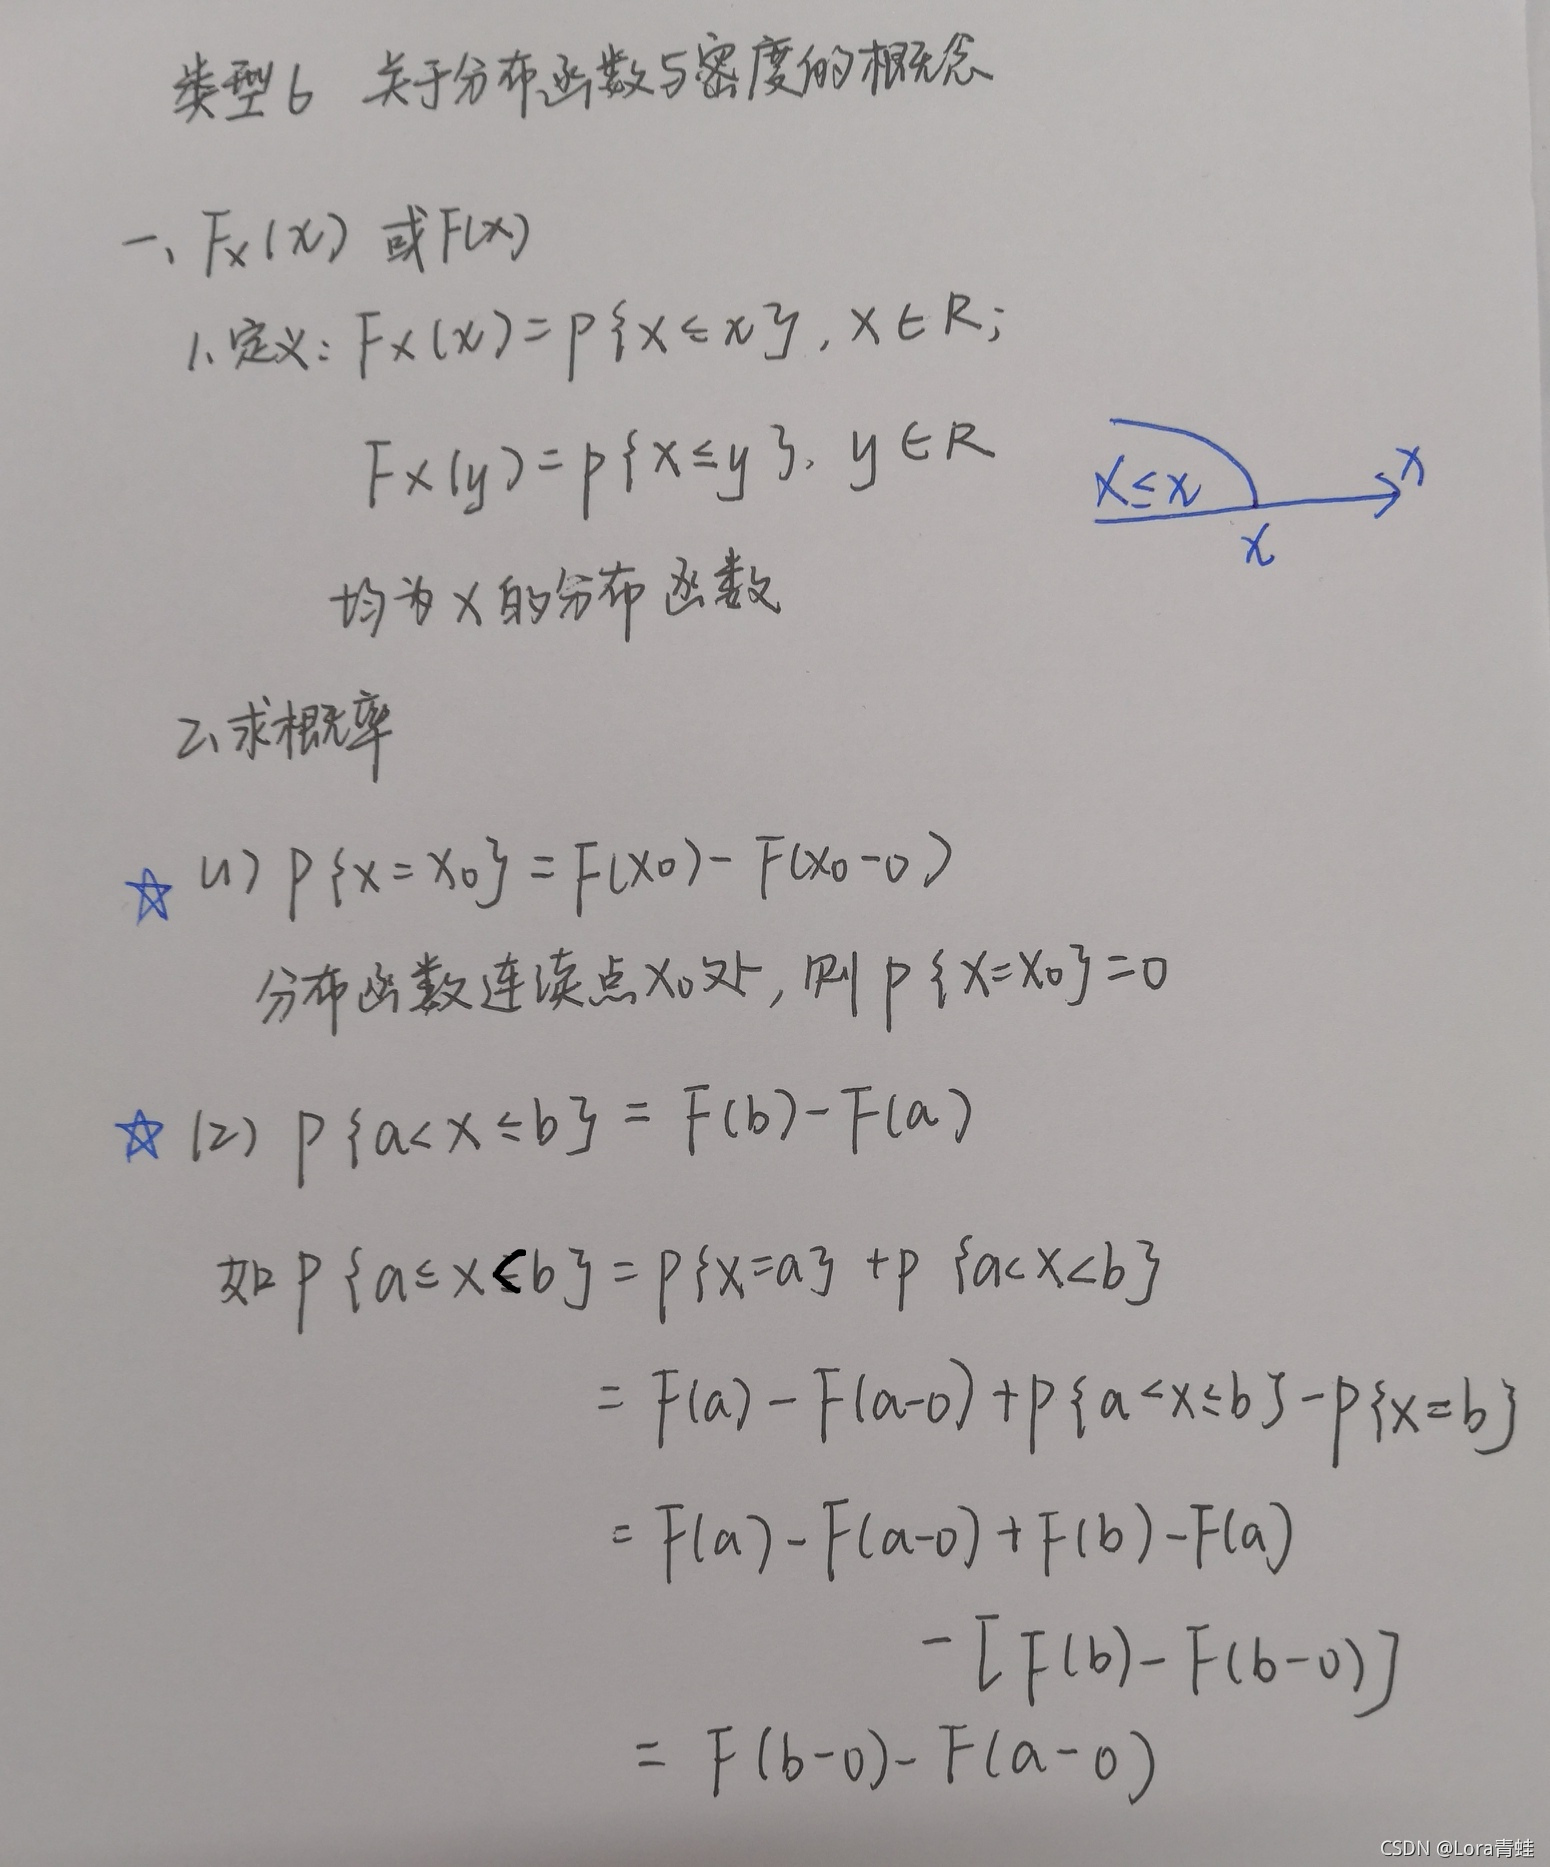 类型6 关于分布函数与密度的概念
一、Fx(x) 或F(x)
1、定义：Fx(x)=P{X≤x}，x∈R；
Fx(y)=P{X≤y}，y∈R
X≤x
x
x
均为X的分布函数
2、求概率
☆ (1) P{X=x₀}=F(x₀)-F(x₀-0)
分布函数连续点x₀处，则P{X=x₀}=0
☆ (2) P{a<X≤b}=F(b)-F(a)
如P{a≤X<b}=P{X=a}+P{a<X<b}
=F(a)-F(a-0)+P{a<X≤b}-P{X=b}
=F(a)-F(a-0)+F(b)-F(a)
-[F(b)-F(b-0)]
=F(b-0)-F(a-0)
CSDN @Lora青蛙